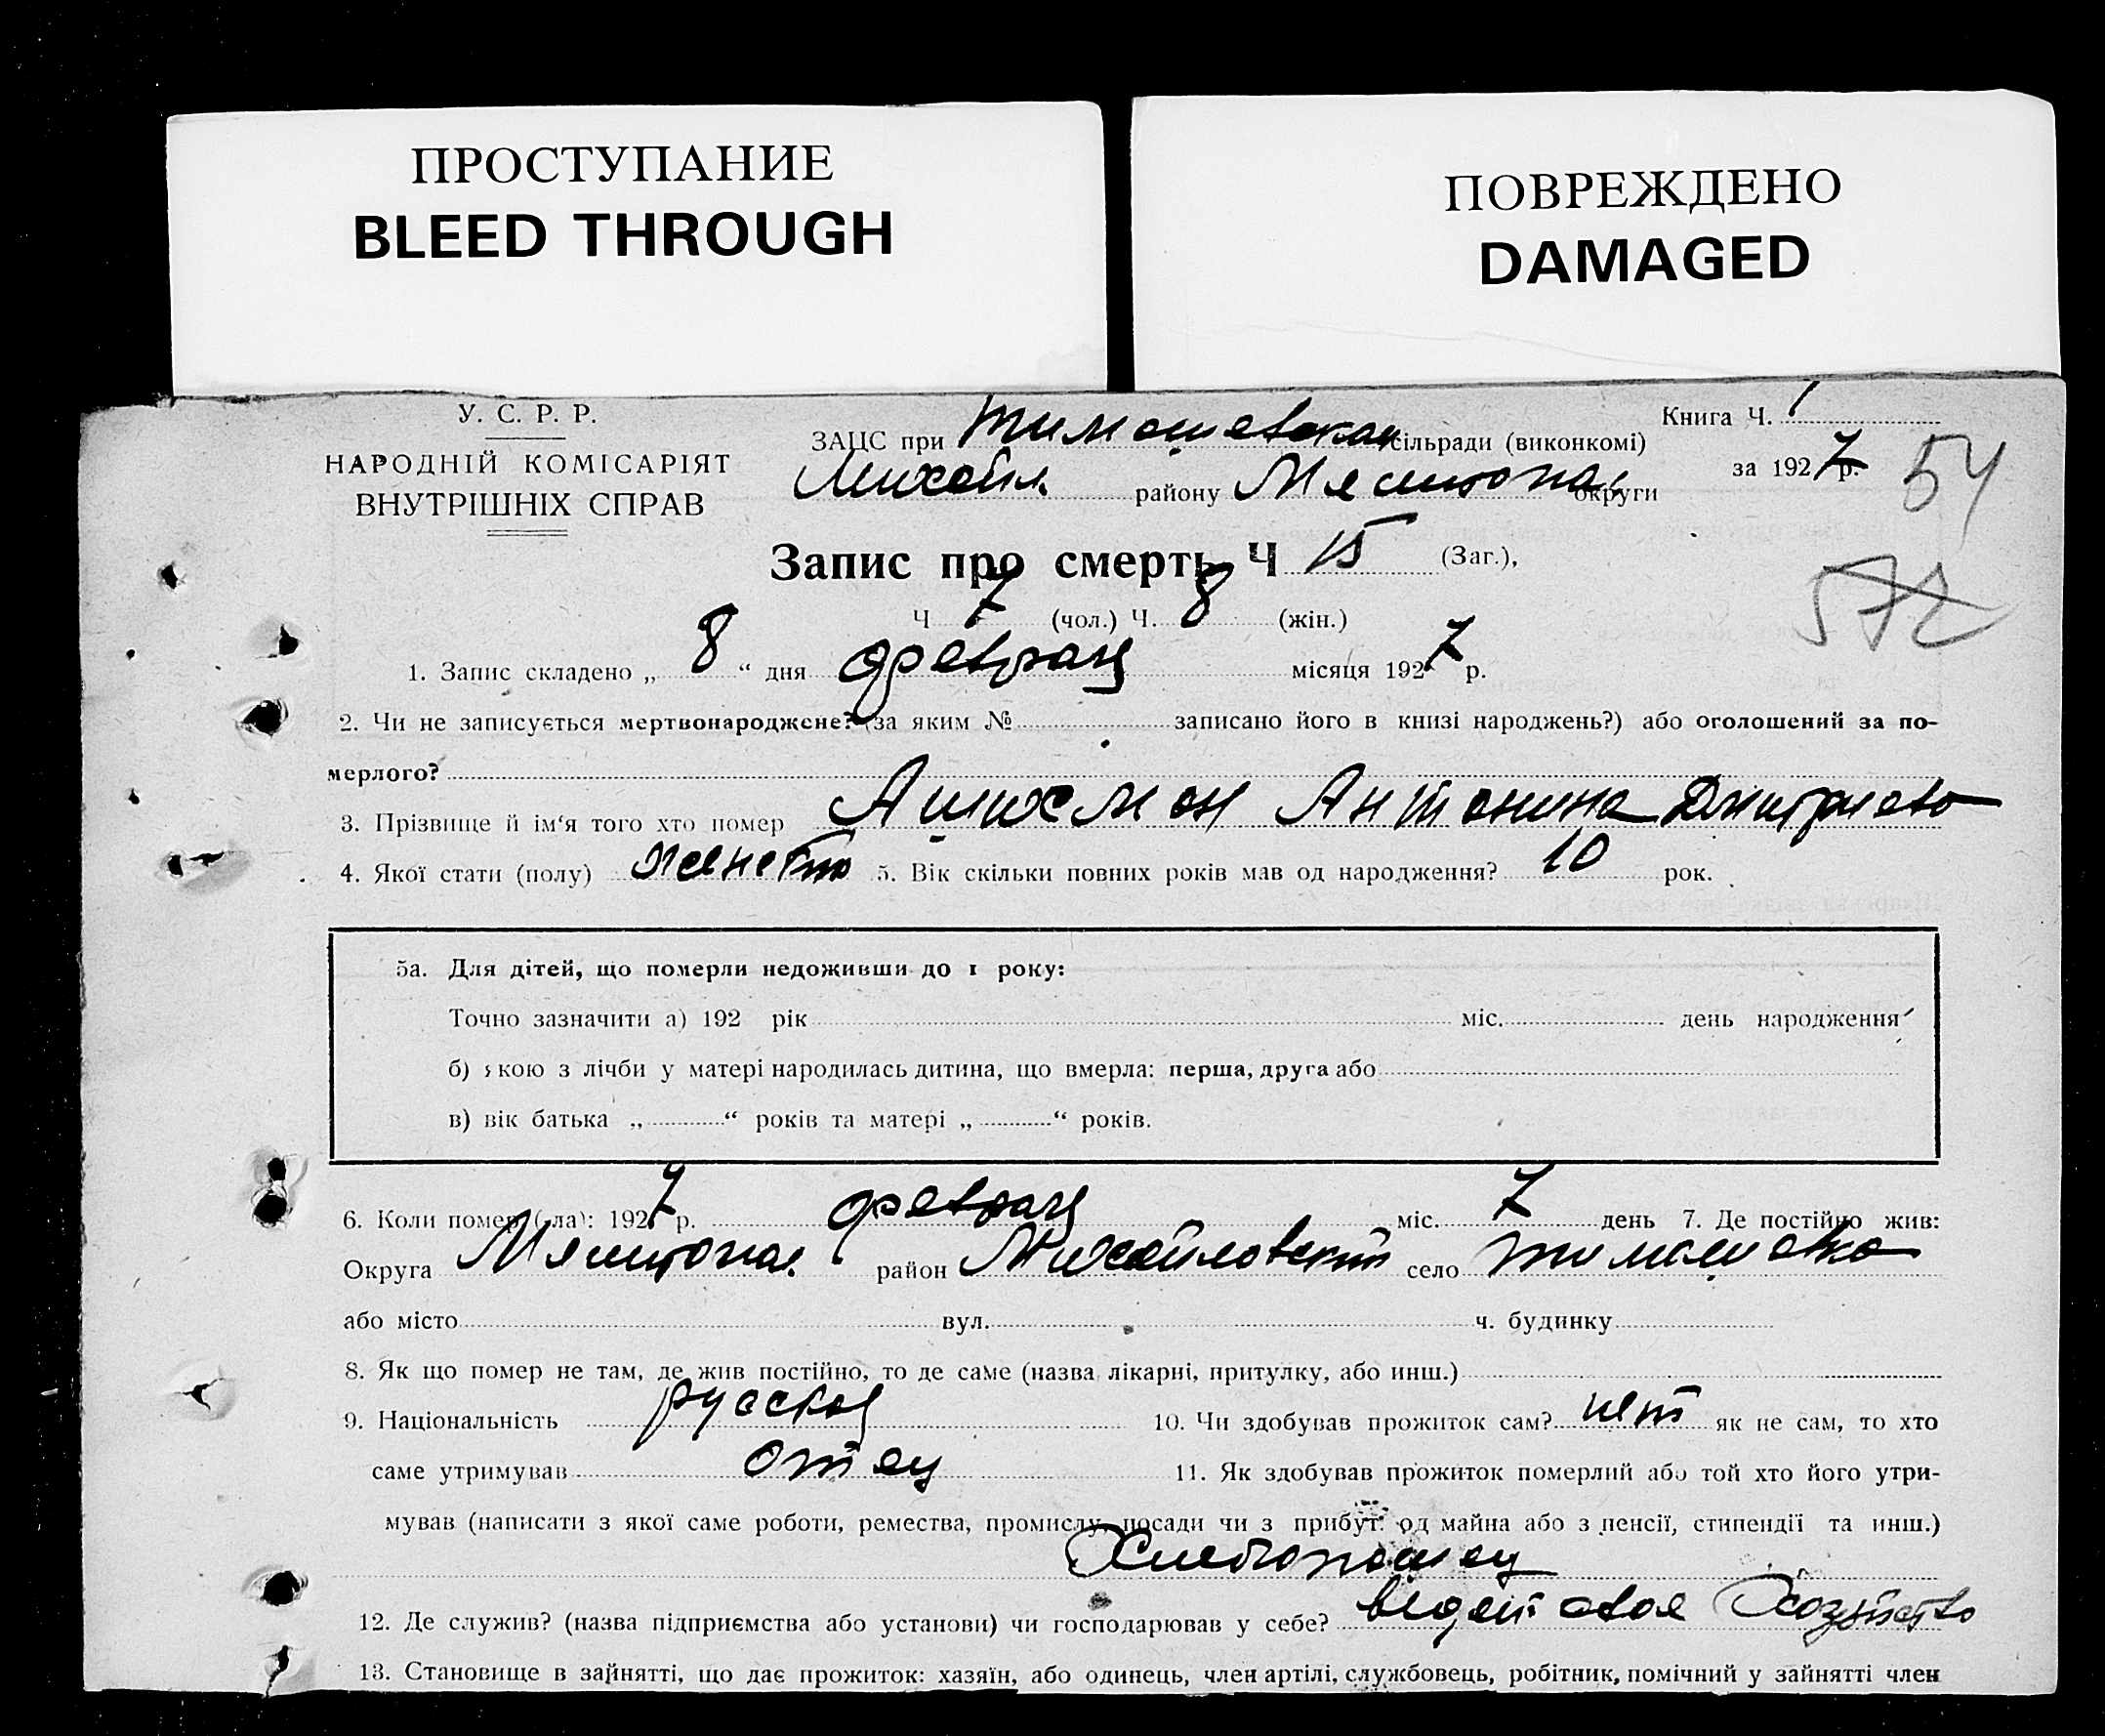 ПРОСТУПАНИЕ
BLEED THROUGH
ПОВРЕЖДЕНО
DAMAGED
У. С. Р. Р.
НАРОДНІЙ КОМІСАРІЯТ
ВНУТРІШНІХ СПРАВ
Книга Ч. 1
ЗАЦС при Тимошевская сільради (виконкомі)
за 1927 р.
54
Михайл. району округи
572
Запис про смерть Ч 15 (Заг.),
Ч 7 (чол.) Ч. 8 (жін.)
1. Запис складено „ 8 “ дня февраля місяця 1927 р.
2. Чи не записується мертвонароджене? (за яким № записано його в книзі народжень?) або оголошений за по-
мерлого?
3. Прізвище й ім‘я того хто помер Антонина Дмитриев
4. Якої стати (полу) 5. Вік скільки повних років мав од народження? 10 рок.
5а. Для дітей, що померли недоживши до 1 року:
Точно зазначити а) 192 рік міс. день народження
б) якою з лічби у матері народилась дитина, що вмерла: перша, друга або
в) вік батька „ “ років та матері „ “ років.
6. Коли помер (ла): 1927 р. февраля міс. 7 день 7. Де постійно жив:
Округа район Михайловский село Тимошевка
або місто вул. ч. будинку
8. Як що помер не там, де жив постійно, то де саме (назва лікарні, притулку, або инш.)
9. Національність русская 10. Чи здобував прожиток сам? нет як не сам, то хто
саме утримував отец 11. Як здобував прожиток померлий або той хто його утри-
мував (написати з якої саме роботи, ремества, промислу, посади чи з прибут. од майна або з пенсії, стипендії та инш.)
Хлебопашец
12. Де служив? (назва підприємства або установи) чи господарював у себе? ведет свое Хозяйство
13. Становище в зайнятті, що дає прожиток: хазяїн, або одинець, член артілі, службовець, робітник, помічний у зайнятті член